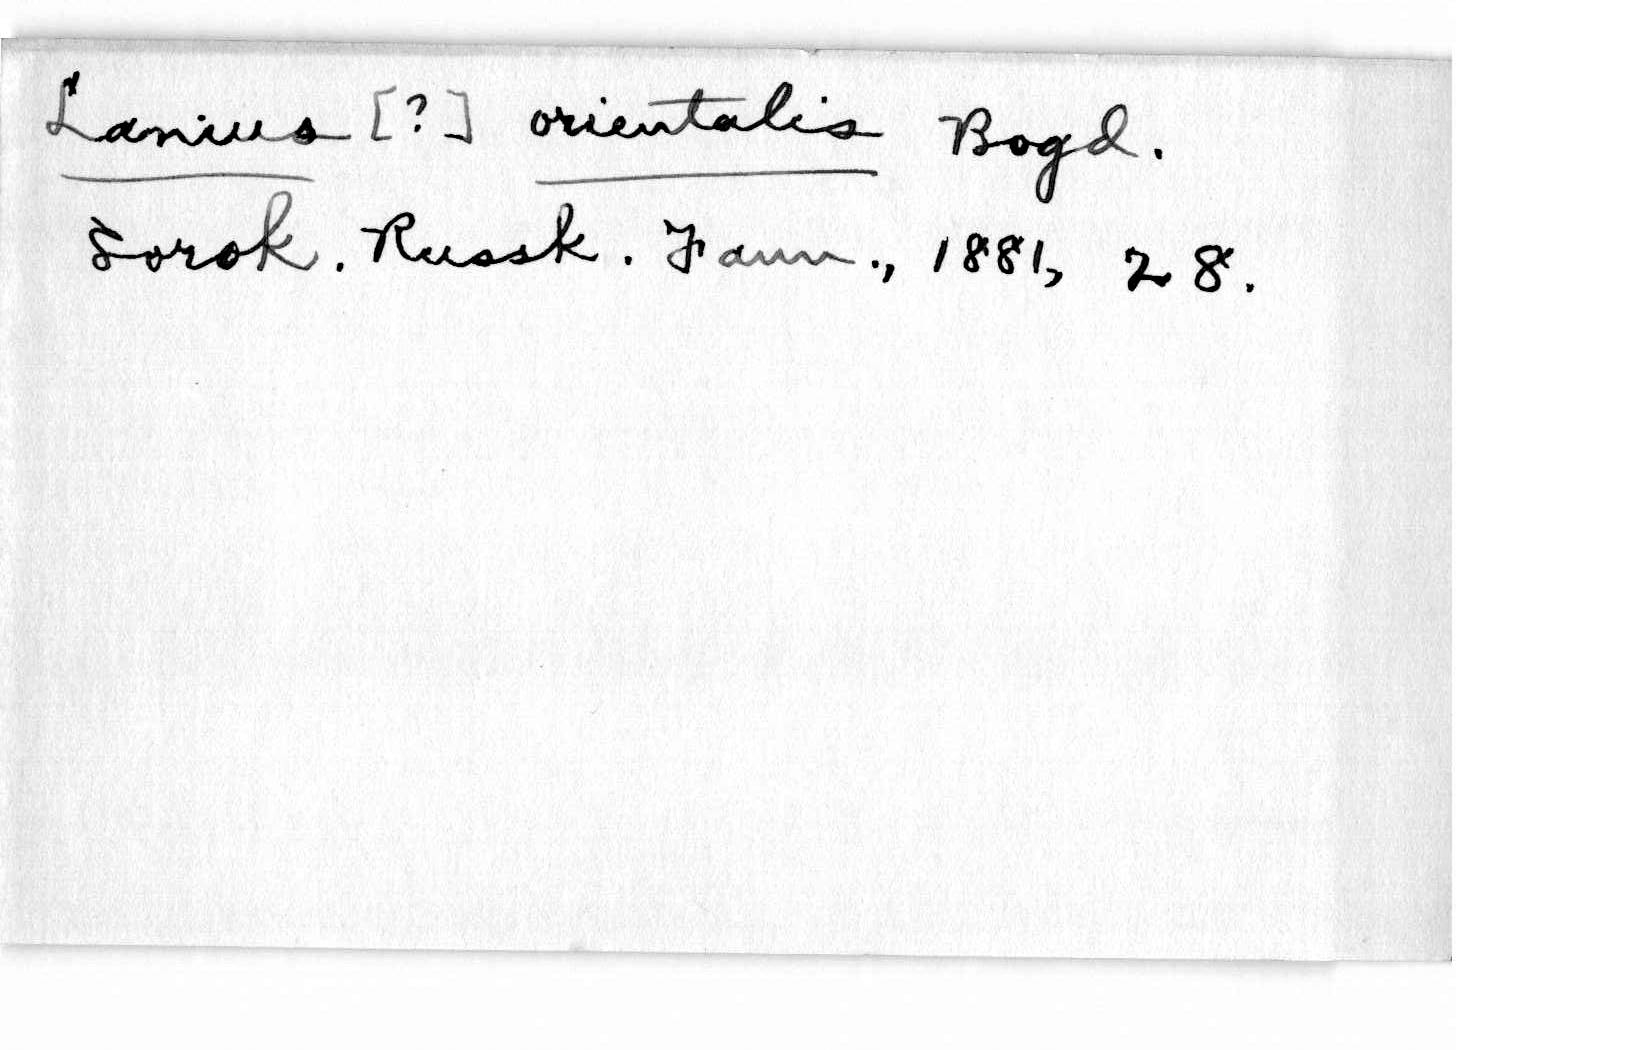 Lanius [?] orientalis Bogd.
Sorok. Russk. Faun., 1881, 28.